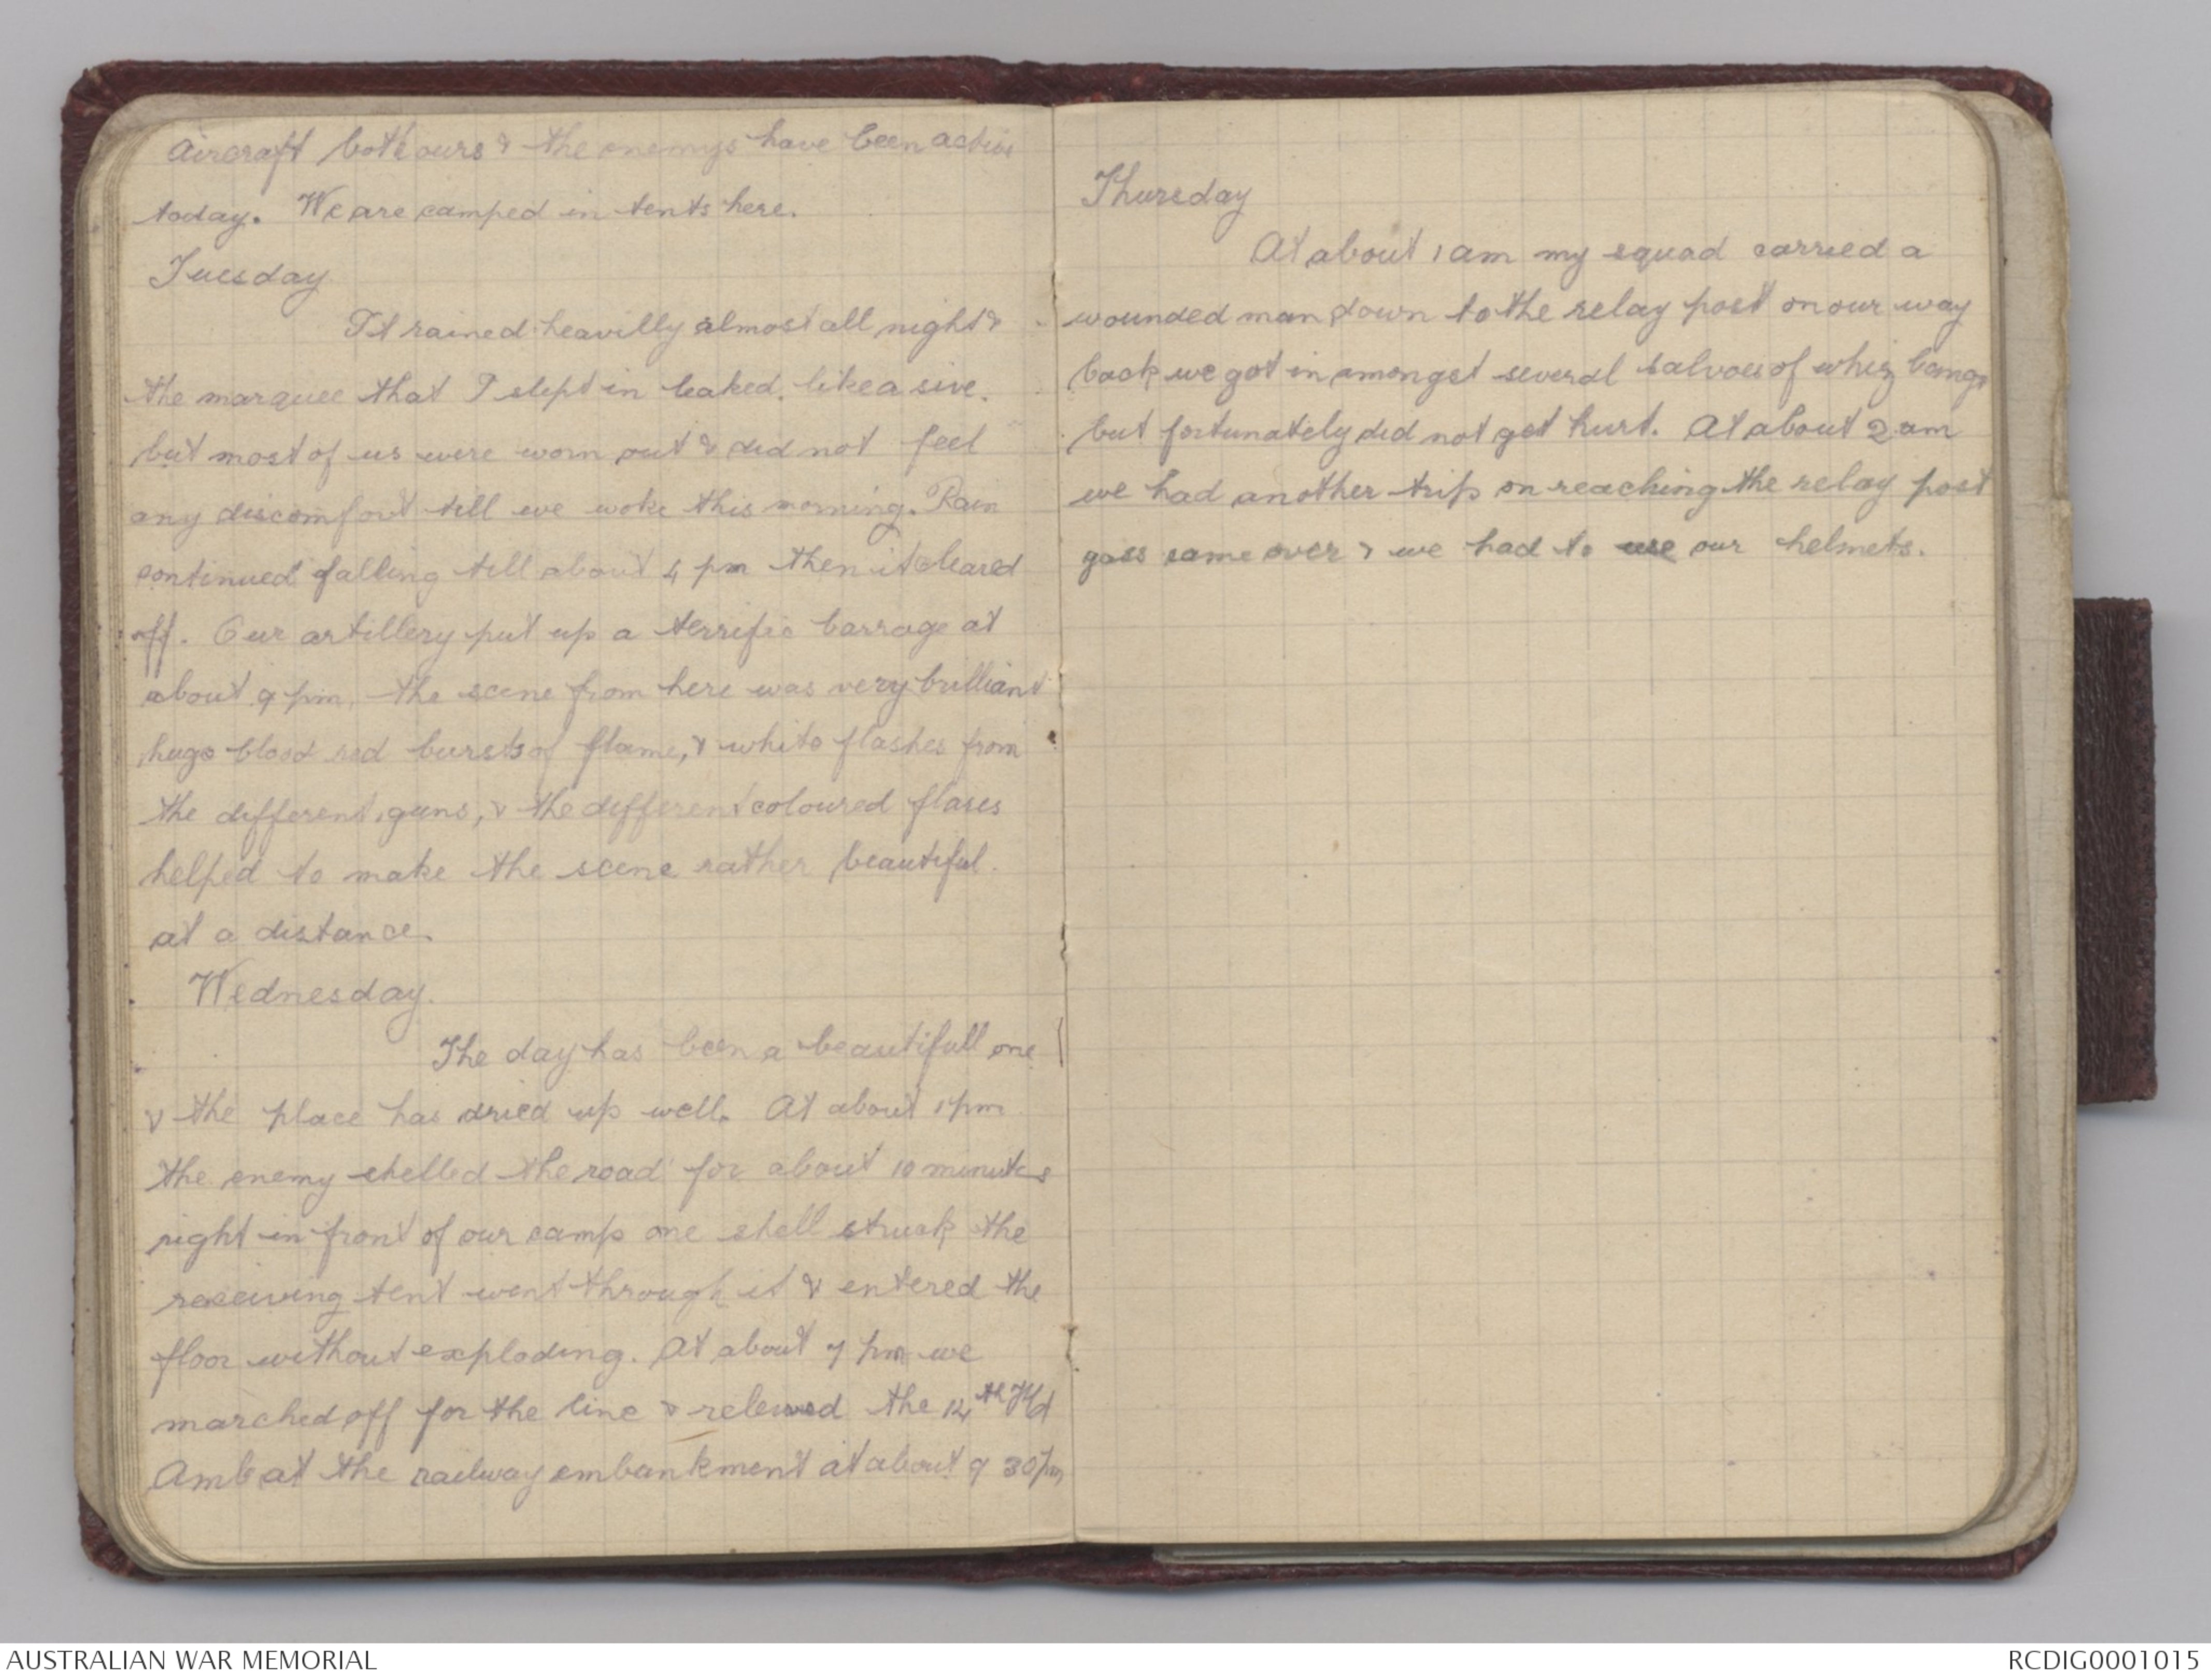 Aircraft both ours & the enemys have been active
today. We are camped in tents here.
Tuesday
It rained heavilly almost all night &
the marquee that I slept in leaked like a sive.
but most of us were worn out & did not feel
any discomfort till we woke this morning. Rain
continued falling till about 4 pm then it cleared
off. Our artillery put up a terrific barrage at
about 9 pm, the scene from here was very brilliant
huge blood red bursts of flame, & white flashes from
the different guns, & the different coloured flares
helped to make the scene rather beautiful.
at a distance.
Wednesday.
The day has been a beautifull one
& the place has dried up well. At about 1 pm
the enemy shelled the road for about 10 minutes
right in front of our camp one shell struck the
receiving tent went through it & entered the
floor without exploding. At about 7 pm we
marched off for the line & releived the 14th Fld
Amb at the railway embankment at about 9 30 pm
Thursday
At about 1 am my squad carried a
wounded man down to the relay post on our way
back we got in amongst several salvoes of whiz bangs
but fortunately did not get hurt. At about 2 am
we had another trip on reaching the relay post
gass came over & we had to use our helmets.
AUSTRALIAN WAR MEMORIAL
RCDIG0001015